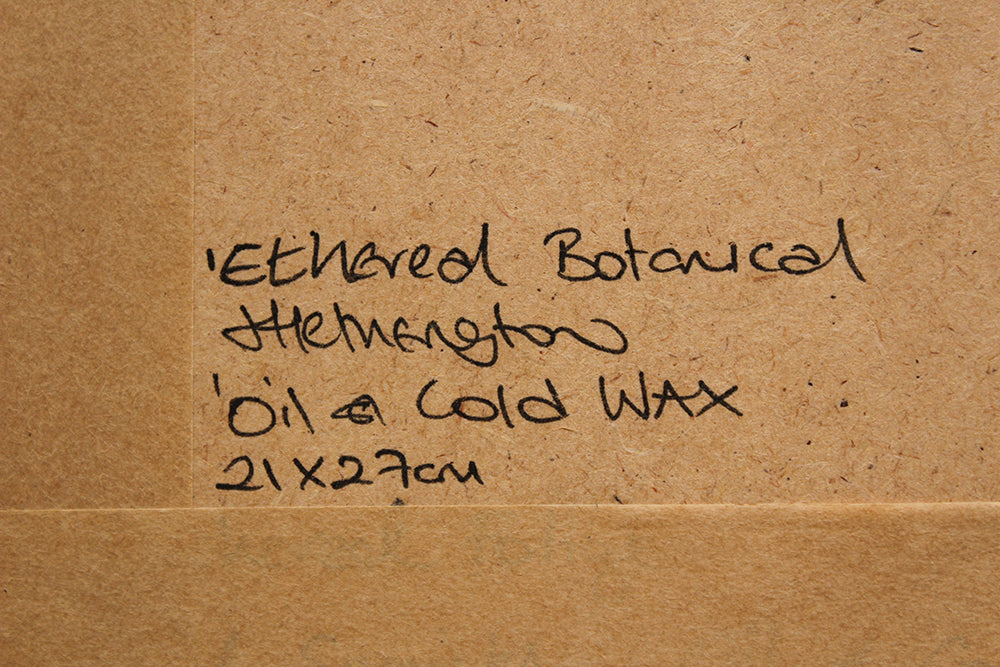 'Ethereal Botanical
JHetherington
'Oil & Cold WAX
21X27cm